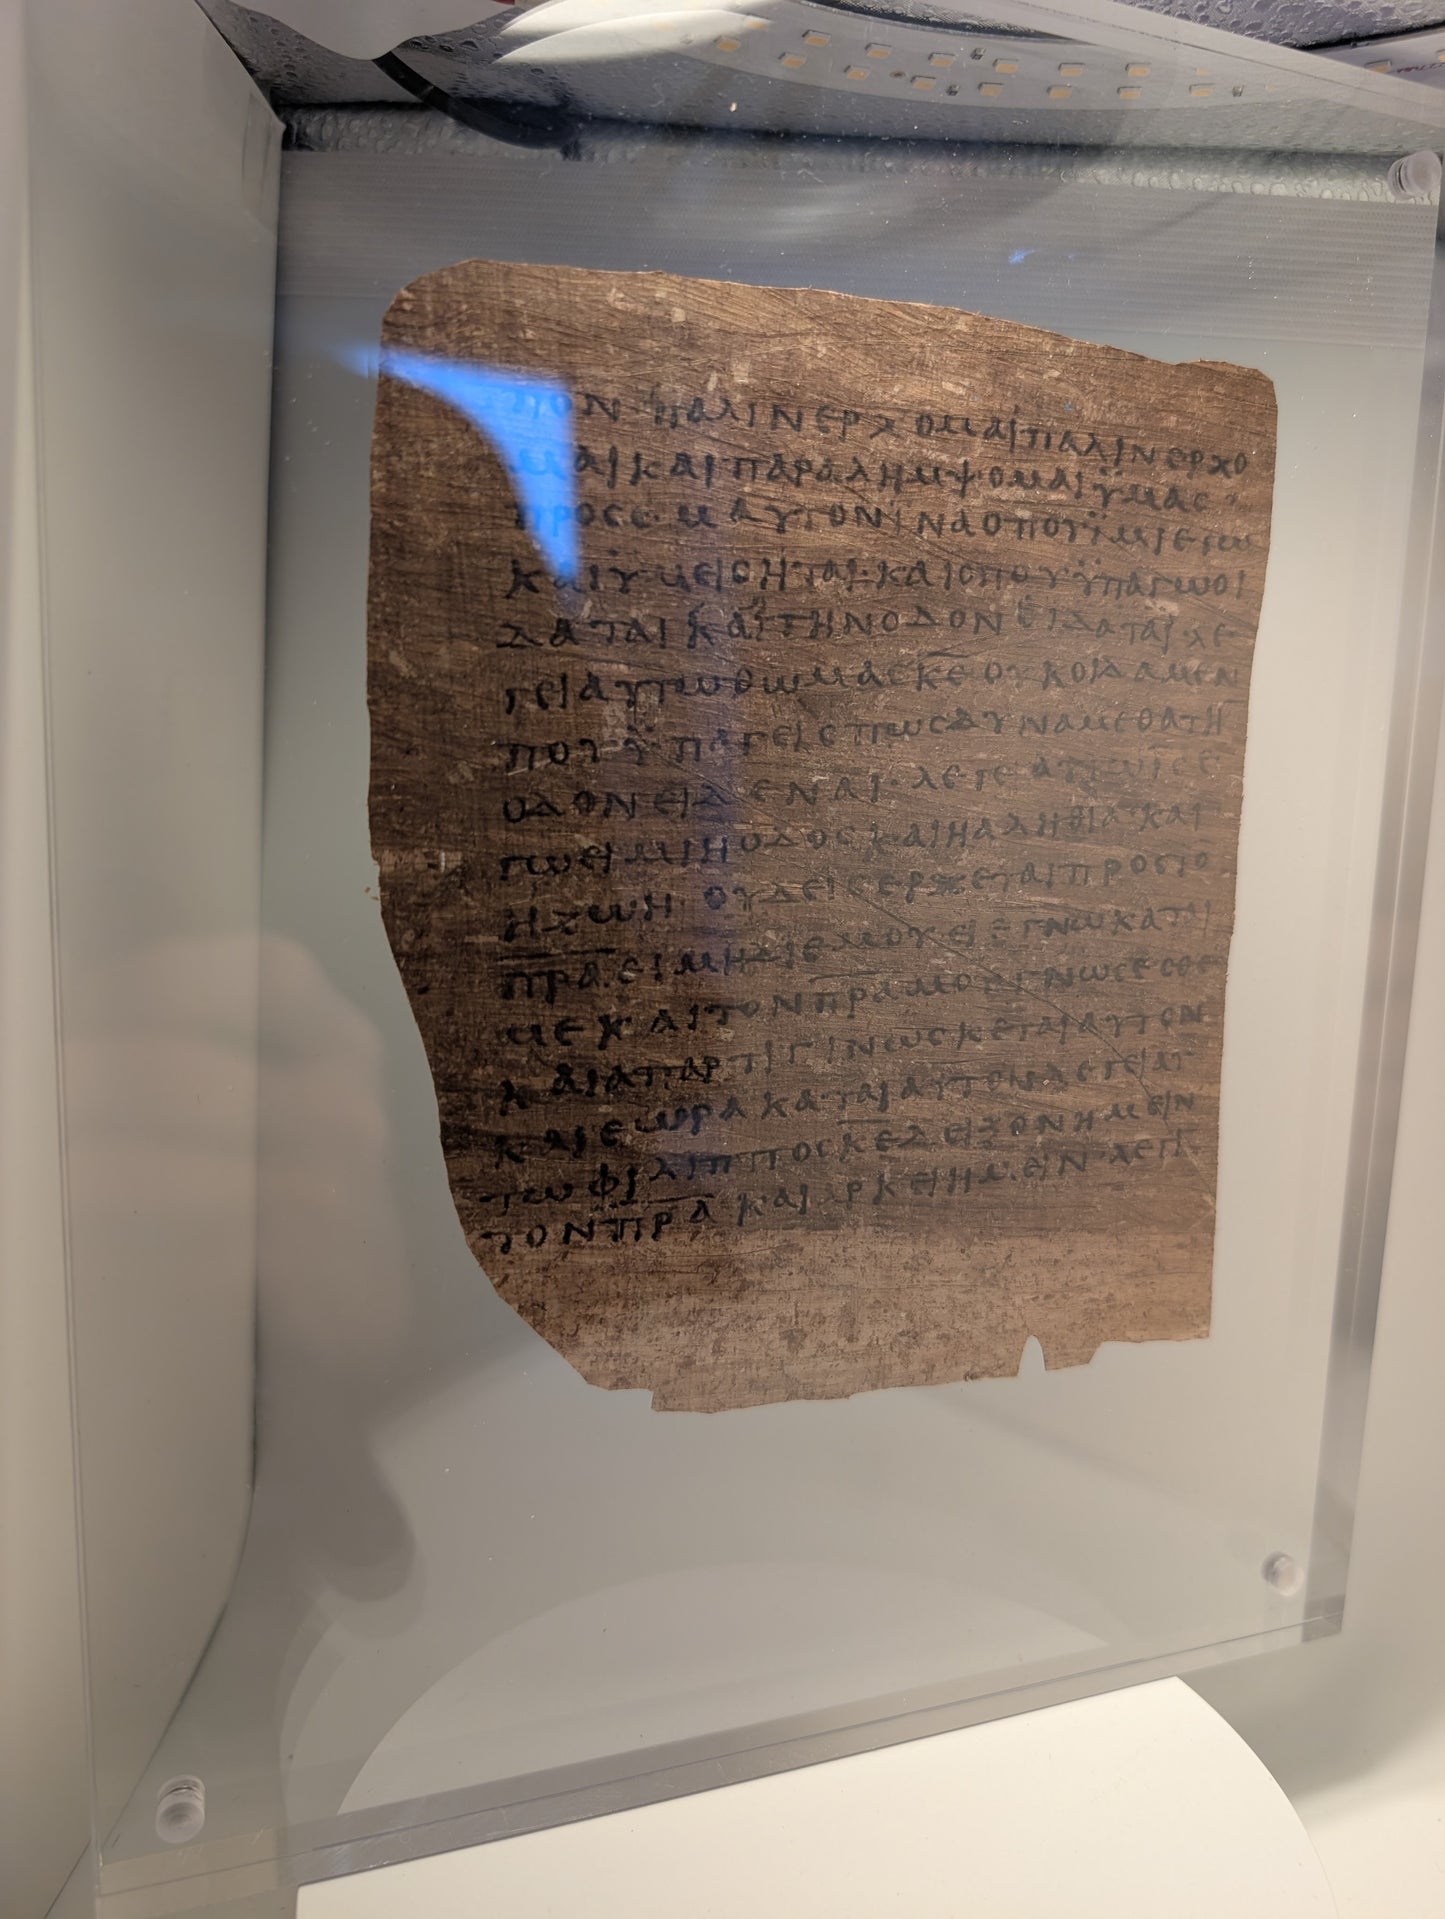 ΠΟΝ ΠΑΛΙΝ ΕΡΧΟΜΑΙ ΠΑΛΙΝ ΕΡΧΟ
ΜΑΙ ΚΑΙ ΠΑΡΑΛΗΜΨΟΜΑΙ ΫΜΑΣ
ΠΡΟΣ ΕΜΑΥΤΟΝ ΪΝΑ ΟΠΟΥ ΕΙΜΙ ΕΓΩ
ΚΑΙ ΫΜΕΙΣ ΗΤΑΙ· ΚΑΙ ΟΠΟΥ ΫΠΑΓΩ ΟΙ
ΔΑΤΑΙ ΚΑΙ ΤΗΝ ΟΔΟΝ ΟΙΔΑΤΑΙ· ΛΕ
ΓΕΙ ΑΥΤΩ ΘΩΜΑΣ Κ̅Ε̅ ΟΥΚ ΟΙΔΑΜΕΝ
ΠΟΥ ΫΠΑΓΕΙΣ ΠΩΣ ΔΥΝΑΜΕΘΑ ΤΗ
ΟΔΟΝ ΕΙΔΕΝΑΙ· ΛΕΓΕ ΑΥΤΩ Ι̅Σ̅ Ε
ΓΩ ΕΙΜΙ Η ΟΔΟΣ ΚΑΙ Η ΑΛΗΘΙΑ ΚΑΙ
Η ΖΩΗ· ΟΥΔΕΙΣ ΕΡΧΕΤΑΙ ΠΡΟΣ ΤΟ
Π̅Ρ̅Α̅ ΕΙ ΜΗ ΔΙ ΕΜΟΥ ΕΙ ΕΓΝΩΚΑΤΗ
ΜΕ ΚΑΙ ΤΟΝ Π̅Ρ̅Α̅ ΜΟΥ ΓΝΩΣΕΣΘΕ
ΚΑΙ ΑΠΑΡΤΙ ΓΙΝΩΣΚΕΤΑΙ ΑΥΤΟΝ
ΚΑΙ ΕΩΡΑΚΑΤΑΙ ΑΥΤΟΝ ΛΕΓΕΙ ΑΥ
ΤΩ ΦΙΛΙΠΠΟΣ Κ̅Ε̅ ΔΕΙΞΟΝ ΗΜΕΙΝ
ΤΟΝ Π̅Ρ̅Α̅ ΚΑΙ ΑΡΚΕΙ ΗΜΕΙΝ